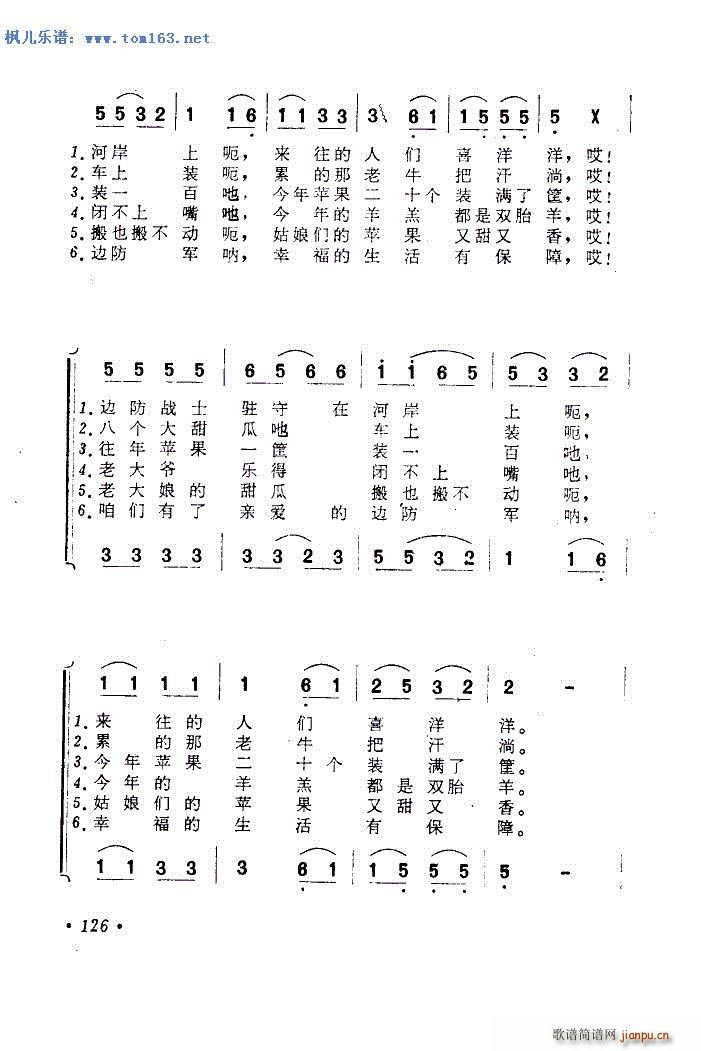 枫儿乐谱：www.tom163.net
5 5 3 2 | 1 1 6 | 1 1 3 3 | 3 6 1 | 1 5 5 5 | 5 X
1.河岸 上呃，来往的人们喜洋洋，哎！
2.车上 装呃，累的那老牛把汗淌，哎！
3.装一 百吔，今年苹果二十个装满了筐，哎！
4.闭不上嘴吔，今年的羊羔都是双胎羊，哎！
5.搬也搬不动呃，姑娘们的苹果又甜又香，哎！
6.边防 军呐，幸福的生活有保障，哎！
5 5 5 5 | 6 5 6 6 | i i 6 5 | 5 3 3 2
1.边防战士驻守在河岸上呃，
2.八个大甜瓜吔车上装呃，
3.往年苹果一筐装一百吔，
4.老大爷乐得闭不上嘴吔，
5.老大娘的甜瓜搬也搬不动呃，
6.咱们有了亲爱的边防军呐，
3 3 3 3 | 3 3 2 3 | 5 5 3 2 | 1 1 6
1 1 1 1 | 1 6 1 | 2 5 3 2 | 2 -
1.来往的人们喜洋洋。
2.累的那老牛把汗淌。
3.今年苹果二十个装满了筐。
4.今年的羊羔都是双胎羊。
5.姑娘们的苹果又甜又香。
6.幸福的生活有保障。
1 1 3 3 | 3 6 1 | 1 5 5 5 | 5 -
·126·
歌谱简谱网
jianpu.cn